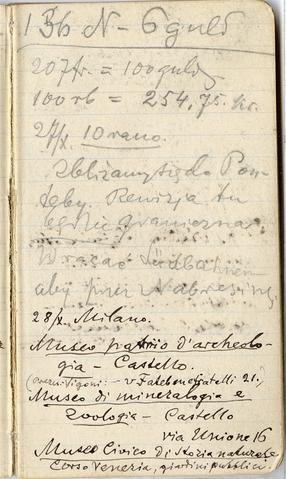 1 3b N - 6 guld
207 fr. = 100 guld
100 rb = 254,75. kr.
27/X. 10 rano.
Zbliżamy się do Pon-
teby. Rewizja tu
będzie graniczna.
Wracać Südbahnem
aby przez Nabresinę.
28/X. Milano.
Museo patrio d'archeolo-
gia – Castello.
v Fatebenefratelli 21.)
Museo di mineralogia e
zoologia – Castello
via Unione 16
Museo Civico di Storia naturale
Corso Venezia, giardini pubblici.